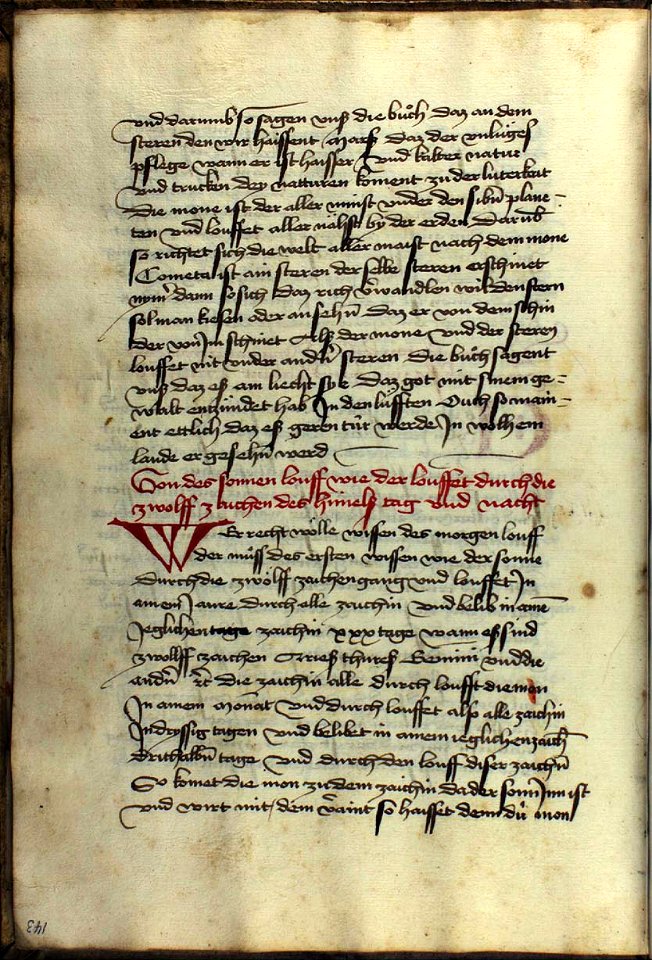 vnd darumb so sagen vnß die buͦch daz an dem
steren den wir haissent Marß daz der vnluges
pflege wann er ist haisser vnd kalter natur
vnd trucken dey natturen koment zu der luterkeit
Die mone ist der aller minst vnder den sibn̄ plane-
ten vnd louffet aller nächst by der erden Darub̄
so richtet sich die welt aller maist nach dem mone
Cometa ist ain steren der selbe steren erschinet
dann so sich daz rich v̄wandlen wil den stern
sol man kiesen oder an sehn̄ daz er von dem schin
der von Im schinet Alß der mone vnd der steren
louffet nit vnder andn̄ steren die buͦch sagent
vnß daz eß am liecht sye daz got mit sinem ge-
walt entzündet hab In den lüfften Ouch so main-
ent ettlich daz eß geren tür werde In wolhem
lande er gesehn̄ werd
Von des sonnen louff wie der louffet durch die
zwolff zaichen des himels tag vnd nacht
WEr recht wölle wissen des morgen louff
der muͦß des ersten wissen wie der sonne
durch die zwölff zaichen gang vnd louffet In
ainem Jaure durch elle zaichin vnd belib in aine
Jeglichen tage zaichin xxx tage wann eß sind
zwollff zaichen Arieß thureß Gemini vnd die
andn̄ ꝛc̄ die zaichin alle durch loufft die mon
In ainem monat vnd durch louffet also alle zaichin
In dryssig tagen vnd belibet in ainem ieglichen zaich̄
drithalbn̄ tage vnd durch den louff diser zaichn̄
So komet die mon zu dem zaichin da der sonn Inn ist
vnd wirt mit dem v̄aint so haisset denn du mon
143